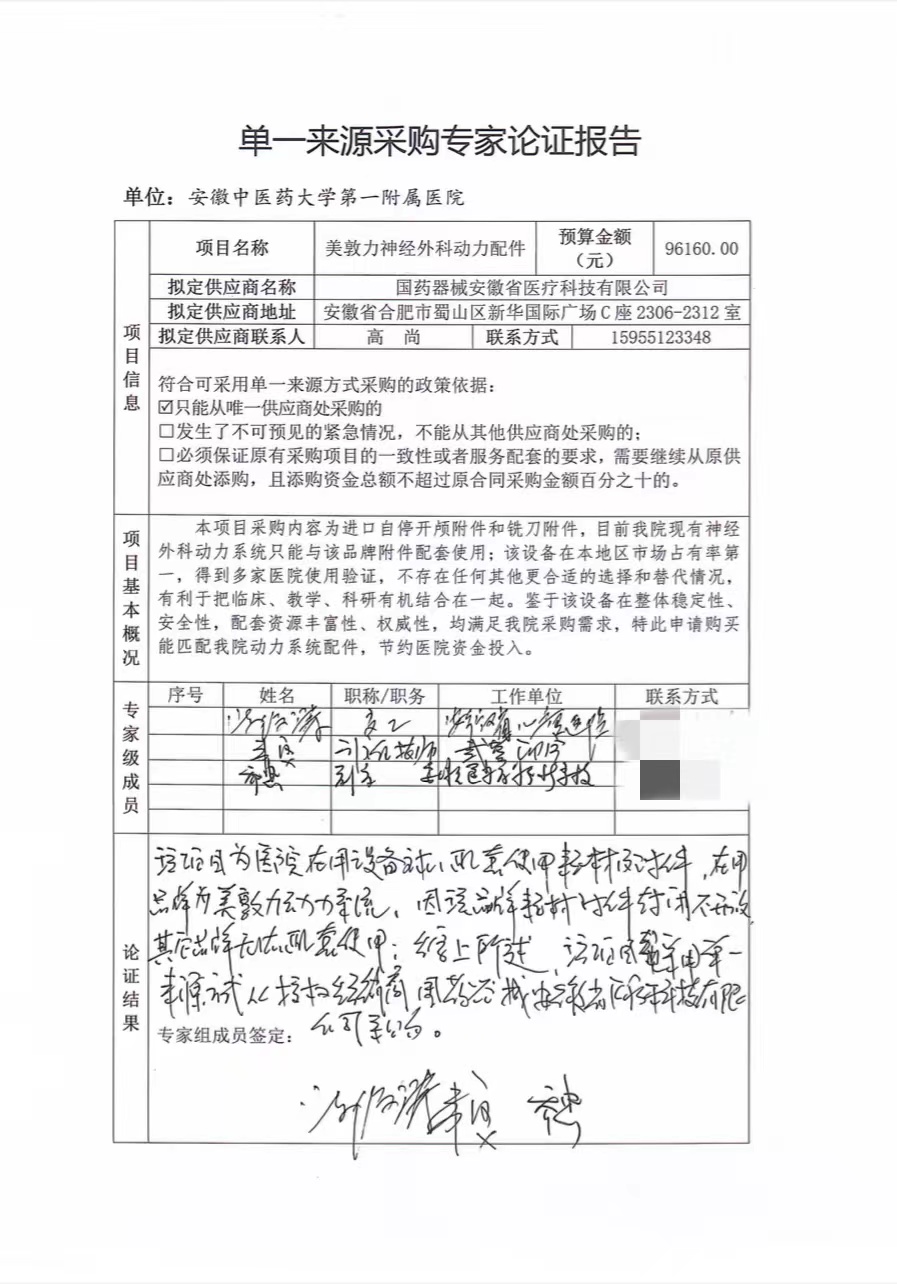 单一来源采购专家论证报告
单位：安徽中医药大学第一附属医院
项目信息
项目名称 美敦力神经外科动力配件 预算金额（元） 96160.00
拟定供应商名称 国药器械安徽省医疗科技有限公司
拟定供应商地址 安徽省合肥市蜀山区新华国际广场C座2306-2312室
拟定供应商联系人 高 尚 联系方式 15955123348
符合可采用单一来源方式采购的政策依据：
☑只能从唯一供应商处采购的
□发生了不可预见的紧急情况，不能从其他供应商处采购的；
□必须保证原有采购项目的一致性或者服务配套的要求，需要继续从原供
应商处添购，且添购资金总额不超过原合同采购金额百分之十的。
项目基本概况
本项目采购内容为进口自停开颅附件和铣刀附件，目前我院现有神经
外科动力系统只能与该品牌附件配套使用；该设备在本地区市场占有率第
一，得到多家医院使用验证，不存在任何其他更合适的选择和替代情况，
有利于把临床、教学、科研有机结合在一起。鉴于该设备在整体稳定性、
安全性，配套资源丰富性、权威性，均满足我院采购需求，特此申请购买
能匹配我院动力系统配件，节约医院资金投入。
专家级成员
序号 姓名 职称/职务 工作单位 联系方式
论证结果
该项目为医院在用设备 配套使用耗材及附件，在用
品牌为美敦力动力系统，因该品牌耗材附件封闭不开放，
其它品牌无法配套使用；综上所述，该项目 采用单一
来源方式从授权经销商国药器械安徽省医疗科技有限
公司采购。
专家组成员签定：